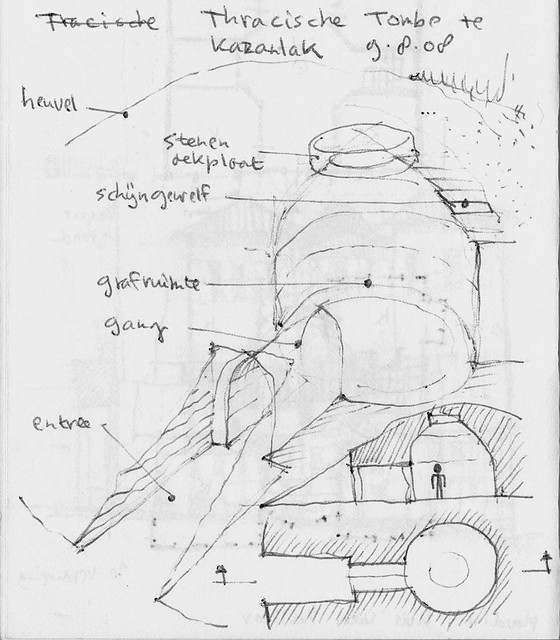 Tracische Thracische Tombe te
Kazanlak 9.8.08
heuvel
stenen
dekplaat
schijngewelf
grafruimte
gang
entree